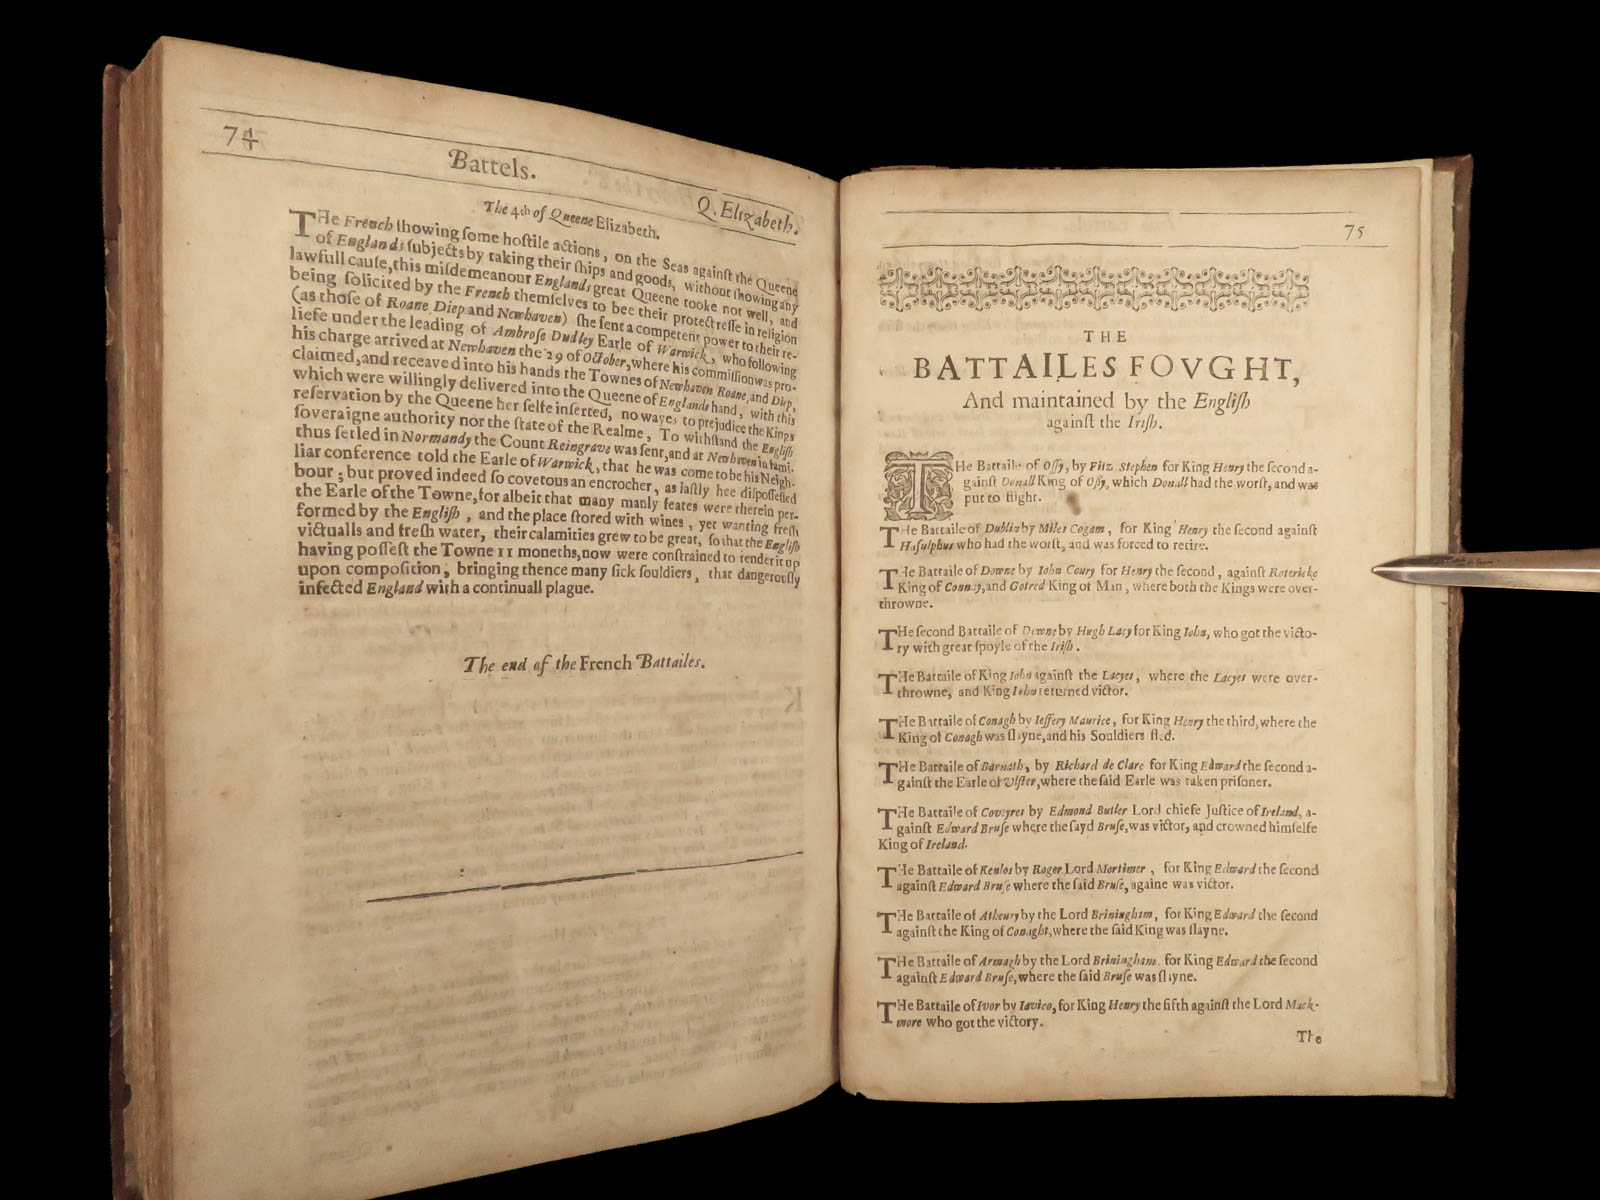 74
Battels.
Q. Elizabeth.
The 4th of Queene Elizabeth.
THe French ſhowing ſome hoſtile actions, on the Seas againſt the Queene
of Englands ſubjects by taking their ſhips and goods, without ſhowing any
lawfull cauſe, this miſdemeanour Englands great Queene tooke not well, and
being ſolicited by the French themſelves to bee their protectreſſe in religion
(as thoſe of Roane Diep and Newhaven) ſhe ſent a competent power to their re-
liefe under the leading of Ambroſe Dudley Earle of Warwick, who following
his charge arrived at Newhaven the 29 of October, where his commiſſion was pro-
claimed, and receaved into his hands the Townes of Newhaven Roane, and Diep,
which were willingly delivered into the Queene of Englands hand, with this
reſervation by the Queene her ſelfe inſerted, no wayes to prejudice the Kings
ſoveraigne authority nor the ſtate of the Realme, To withſtand the Engliſh
thus ſetled in Normandy the Count Reingrave was ſent, and at Newhaven in fami-
liar conference told the Earle of Warwick, that he was come to be his Neigh-
bour; but proved indeed ſo covetous an encrocher, as laſtly hee diſpoſſeſſed
the Earle of the Towne, for albeit that many manly feates were therein per-
formed by the Engliſh, and the place ſtored with wines, yet wanting freſh
victualls and freſh water, their calamities grew to be great, ſo that the Engliſh
having poſſeſt the Towne 11 moneths, now were conſtrained to render it up
upon compoſition, bringing thence many ſick ſouldiers, that dangerouſly
infected England with a continuall plague.
The end of the French Battailes.
75
THE
BATTAILES FOVGHT,
And maintained by the Engliſh
againſt the Iriſh.
THe Battaile of Oſſy, by Fitz Stephen for King Henry the ſecond a-
gainſt Donall King of Oſſy, which Donall had the worſt, and was
put to flight.
THe Battaile of Dublin by Miles Cogam, for King Henry the ſecond againſt
Haſulphus who had the worſt, and was forced to retire.
THe Battaile of Downe by Iohn Coury for Henry the ſecond, againſt Rotericke
King of Connay, and Gotred King of Man, where both the Kings were over-
throwne.
THe ſecond Battaile of Downe by Hugh Lacy for King Iohn, who got the victo-
ry with great ſpoyle of the Iriſh.
THe Battaile of King Iohn againſt the Lacyes, where the Lacyes were over-
throwne, and King Iohn returned victor.
THe Battaile of Conagh by Ieffery Maurice, for King Henry the third, where the
King of Conagh was ſlayne, and his Souldiers fled.
THe Battaile of Barnath, by Richard de Clare for King Edward the ſecond a-
gainſt the Earle of Vlſter, where the ſaid Earle was taken priſoner.
THe Battaile of Coveyres by Edmond Butler Lord chiefe Juſtice of Ireland, a-
gainſt Edward Bruſe where the ſayd Bruſe, was victor, and crowned himſelfe
King of Ireland.
THe Battaile of Kenlos by Roger Lord Mortimer, for King Edward the ſecond
againſt Edward Bruſe where the ſaid Bruſe, againe was victor.
THe Battaile of Athenry by the Lord Briningham, for King Edward the ſecond
againſt the King of Conaght, where the ſaid King was ſlayne.
THe Battaile of Armagh by the Lord Briningham, for King Edward the ſecond
againſt Edward Bruſe, where the ſaid Bruſe was ſlayne.
THe Battaile of Ivor by Iavico, for King Henry the fifth againſt the Lord Mack-
more who got the victory.
The